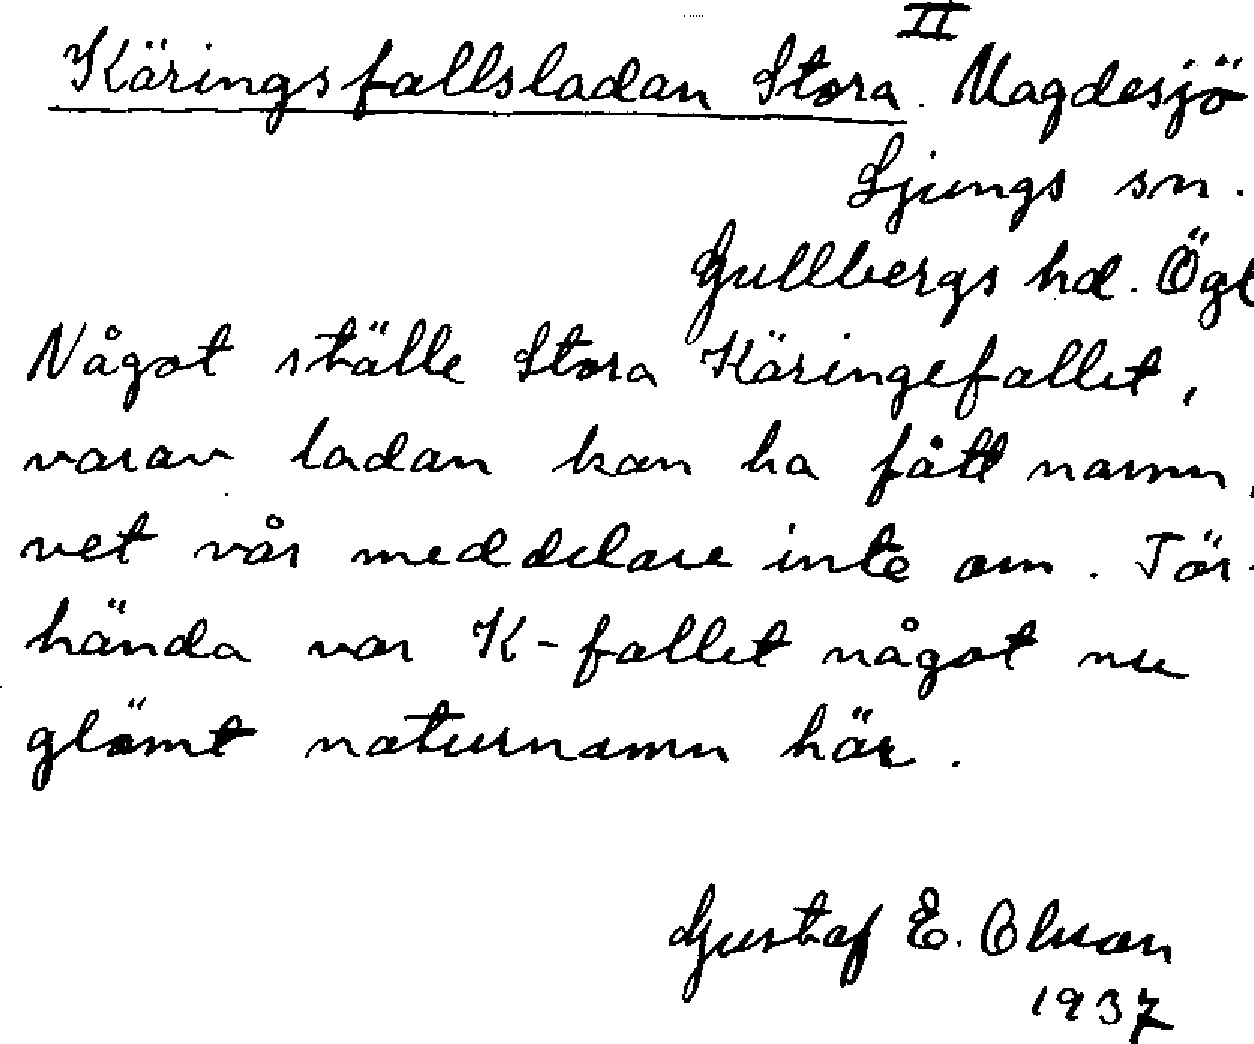 II
Käringsfallsladan Stora. Magdesjö
Ljungs sn.
Gullbergs hd. Ögl
Något ställe Stora Käringefallet,
varav ladan kan ha fått namn,
vet vår meddelare inte om. Tör-
hända var K-fallet något nu
glömt naturnamn här.
Gustaf E. Olsson
1937